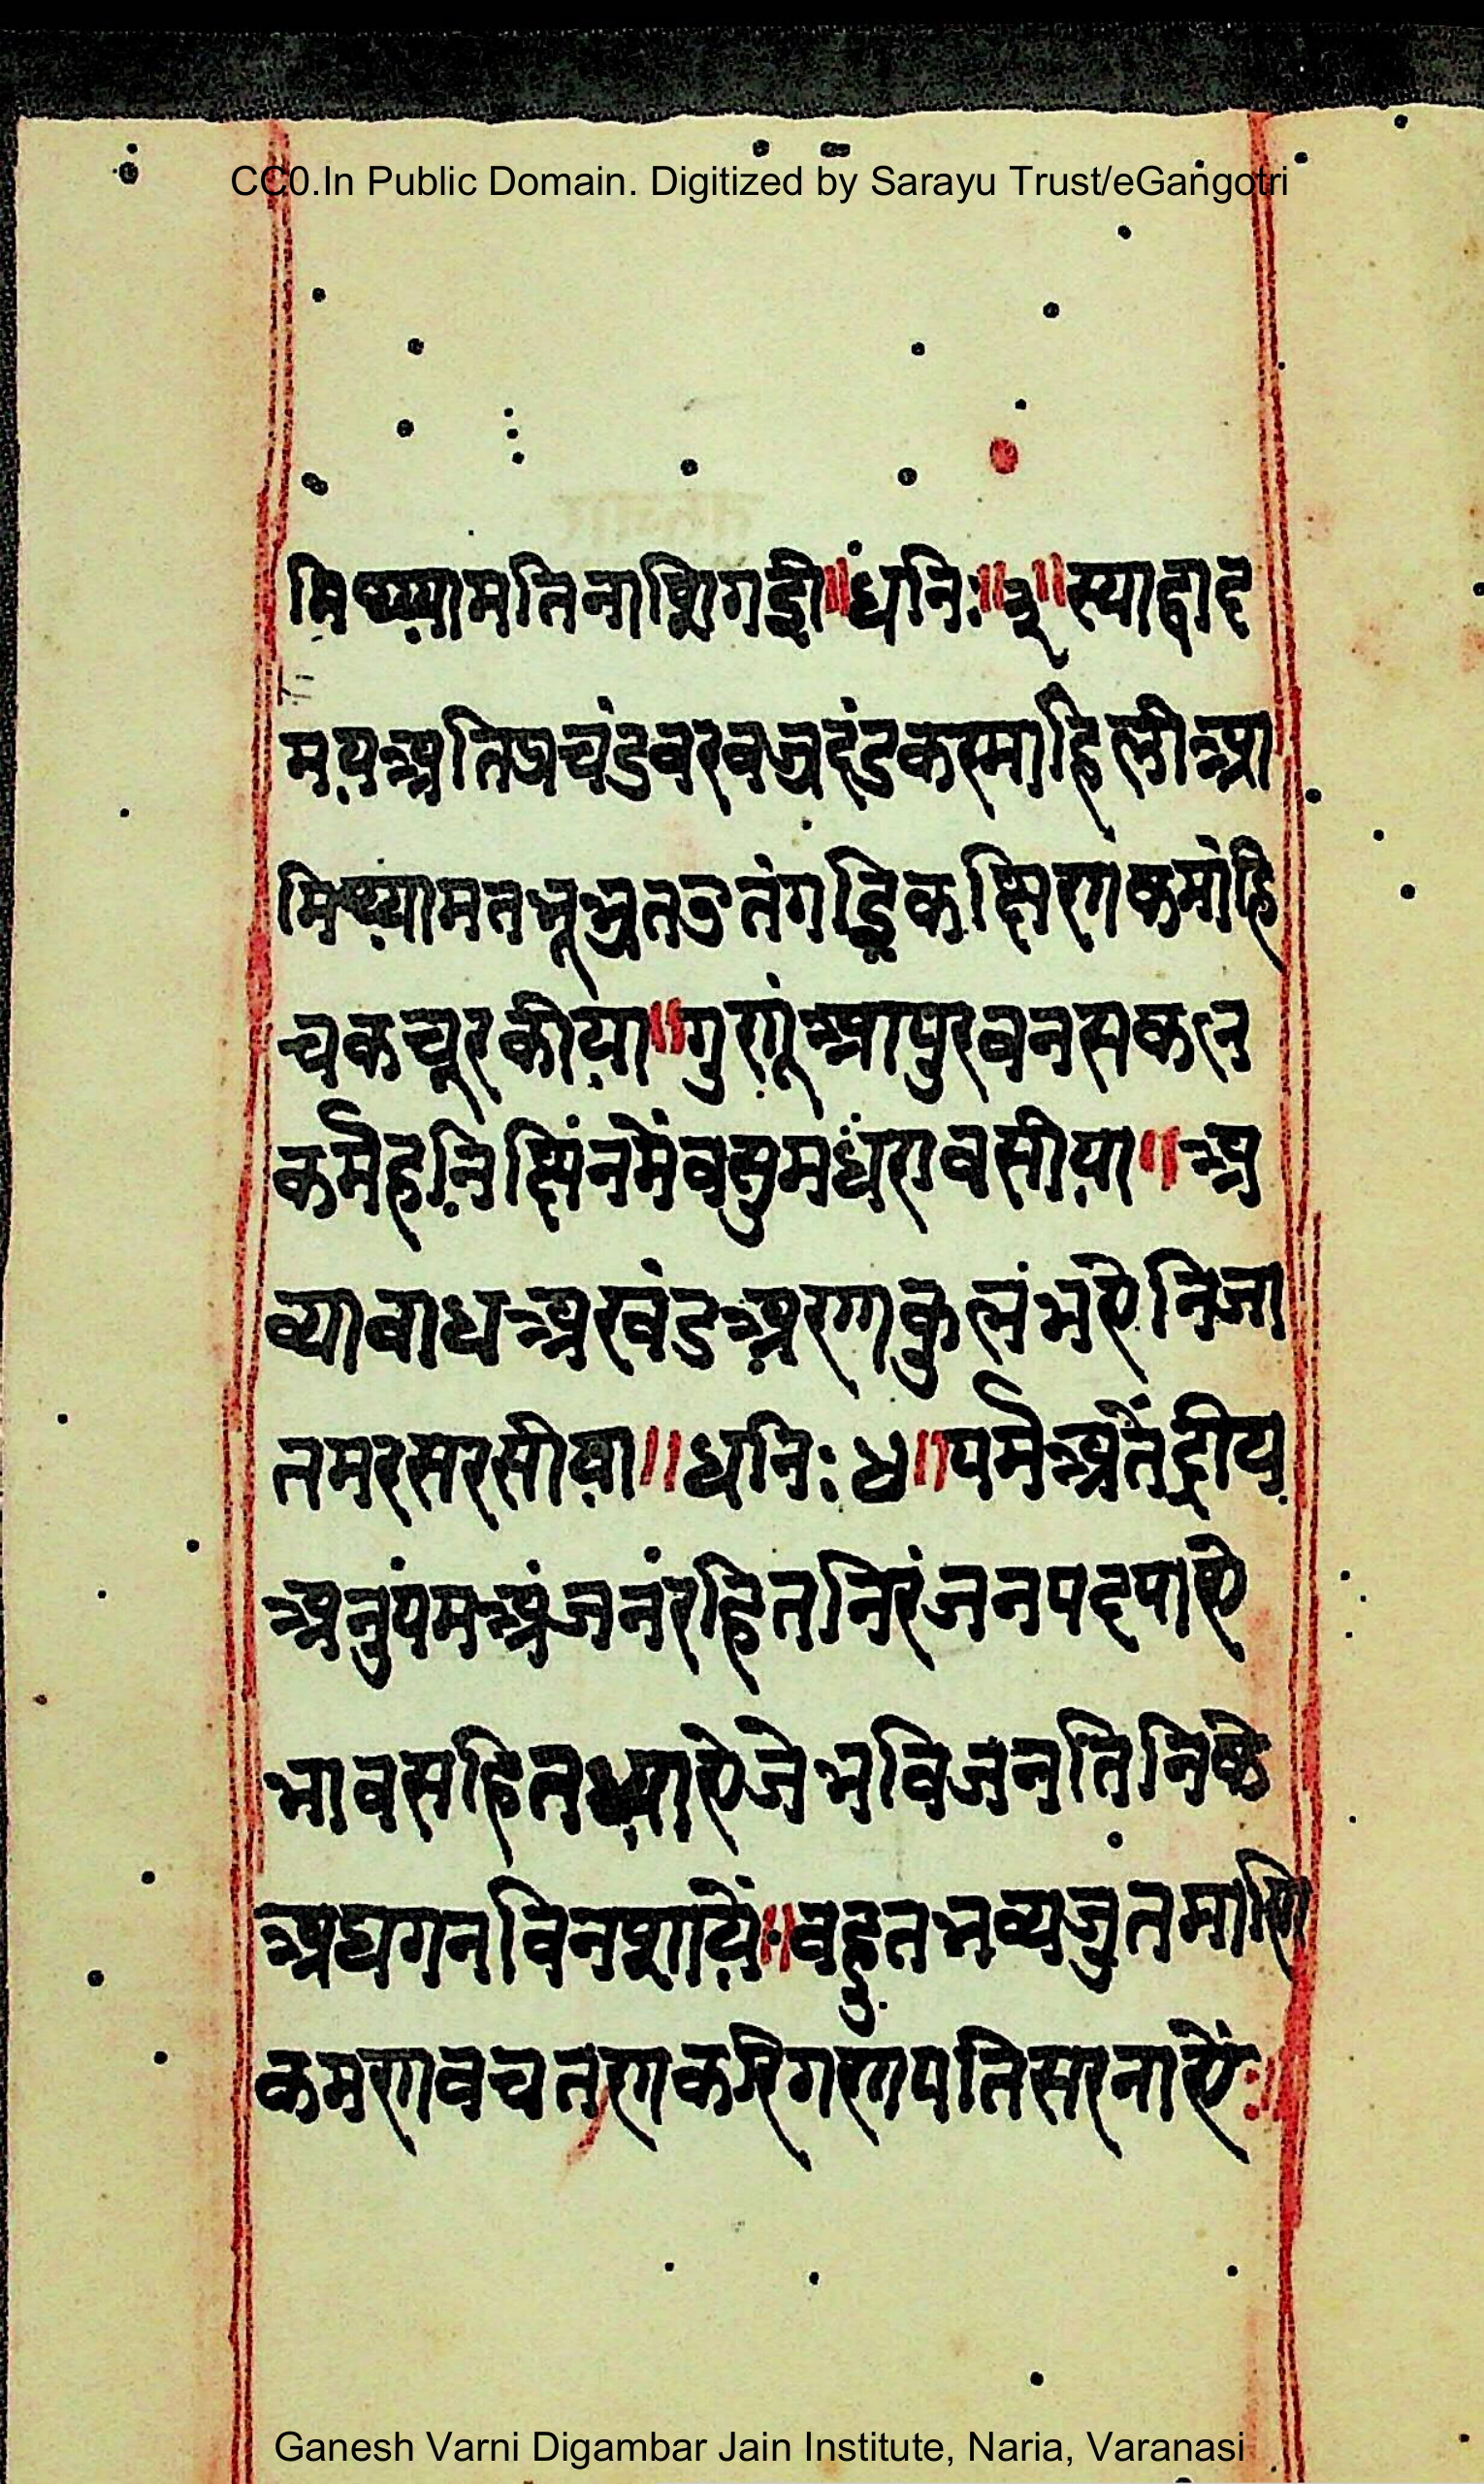 CC0.In Public Domain. Digitized by Sarayu Trust/eGangotri
मिथ्यामतिनाशिगई॥धनिः॥३॥स्याद्वाद
मयअतिप्रचंडवरवज्रदंडकरमाहिलीआ
मिथ्यामतभूभ्रतउतंगछिकछिणकमांहि
चकचूरकीया॥गुणआपुरवनसकल
कर्महनिछिनमेंवसुमधरावसीया॥अ
व्याबाधअखंडअरणकुलंभऐनिजा
तमरससरसीया॥धनिः४॥पर्मअतेंद्रीय
अनुपमअंजनरहितनिरंजनपदपाऐ
भावसहितध्याऐजेभविजनतिनिके
अघगनविनशाये॥बहुतभव्यजुतमाणि
कमणवचतणकरिगणपतिसरनाऐं॥
Ganesh Varni Digambar Jain Institute, Naria, Varanasi